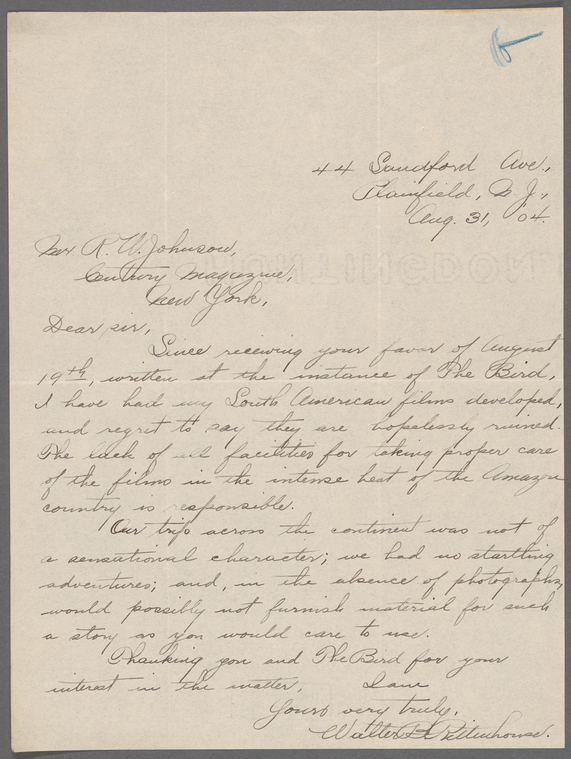 44 Sandford Ave.,
Plainfield, N. J.,
Aug. 31, '04.
Mr R. W. Johnson,
Century Magazine,
New York,
Dear sir,
Since receiving your favor of August
19th, written at the instance of The Bird,
I have had my South American films developed,
and regret to say they are hopelessly ruined.
The lack of all facilities for taking proper care
of the films in the intense heat of the Amazon
country is responsible.
Our trip across the continent was not of
a sensational character; we had no startling
adventures; and, in the absence of photographs,
would possibly not furnish material for such
a story as you would care to use.
Thanking you and The Bird for your
interest in the matter, I am
Yours very truly,
Walter B. Rittenhouse.